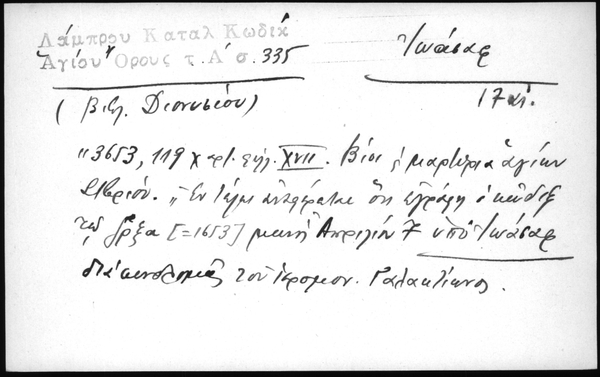 Λάμπρου Καταλ Κωδίκ
Ἁγίου Ὄρους τ. Α' σ. 335
Ἰωάσαφ
17 αἰ.
(Βιβλ. Διονυσίου)
"3653, 119 χαρτ. φύλ. XVII. Βίοι καὶ μαρτύρια ἁγίων
Ἐν τέλει ἀναφέρεται ὅτι ἐγράφη ὁ κῶδιξ
τῷ ͵ζρξα [=1653] μηνὶ Ἀπριλίῳ 7 ὑπὸ Ἰωάσαφ
διὰ συνδρομῆς τοῦ ἱερομον. Γαλακτίωνος.